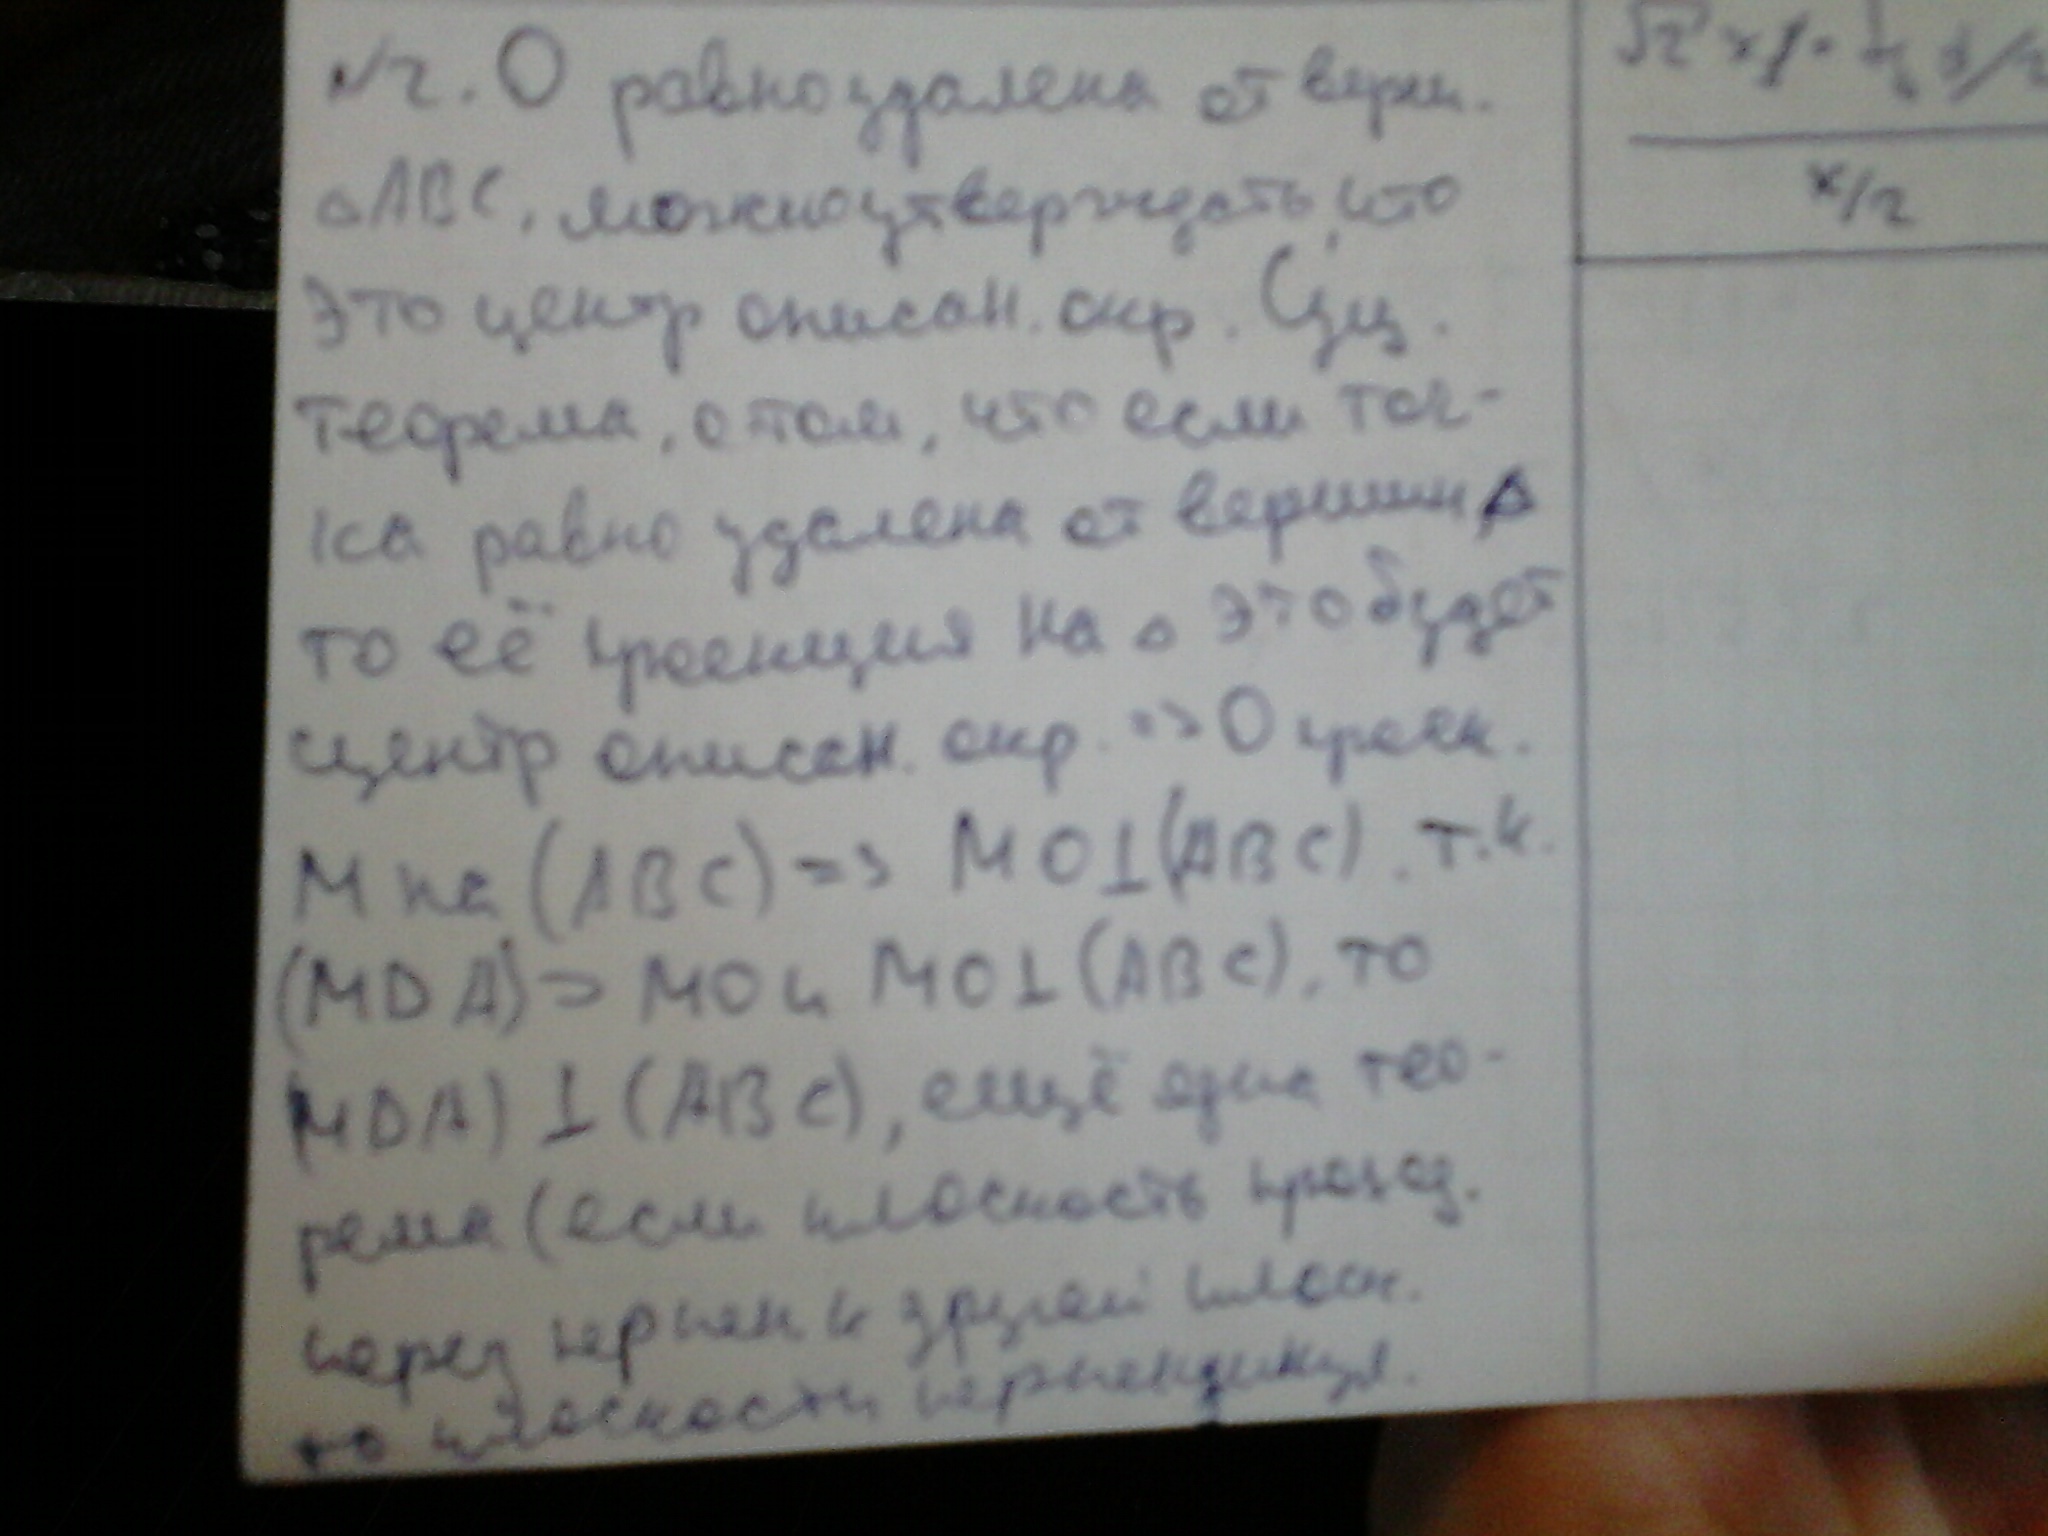 №2. О равноудалена от верш.
△ABC, можно утверждать, что
это центр описан. окр.
теорема, о том, что если точ-
ка равно удалена от вершин △
то её проекция на △ это будет
центр описан. окр. => О проек.
М на (ABC) => MO⊥(ABC). т.к.
(MDA)⊃MO и MO⊥(ABC), то
MDA)⊥(ABC), ещё одна тео-
рема (если плоскость проход.
через перпен к другой плоск.
то плоскости перпендикул.
x/2